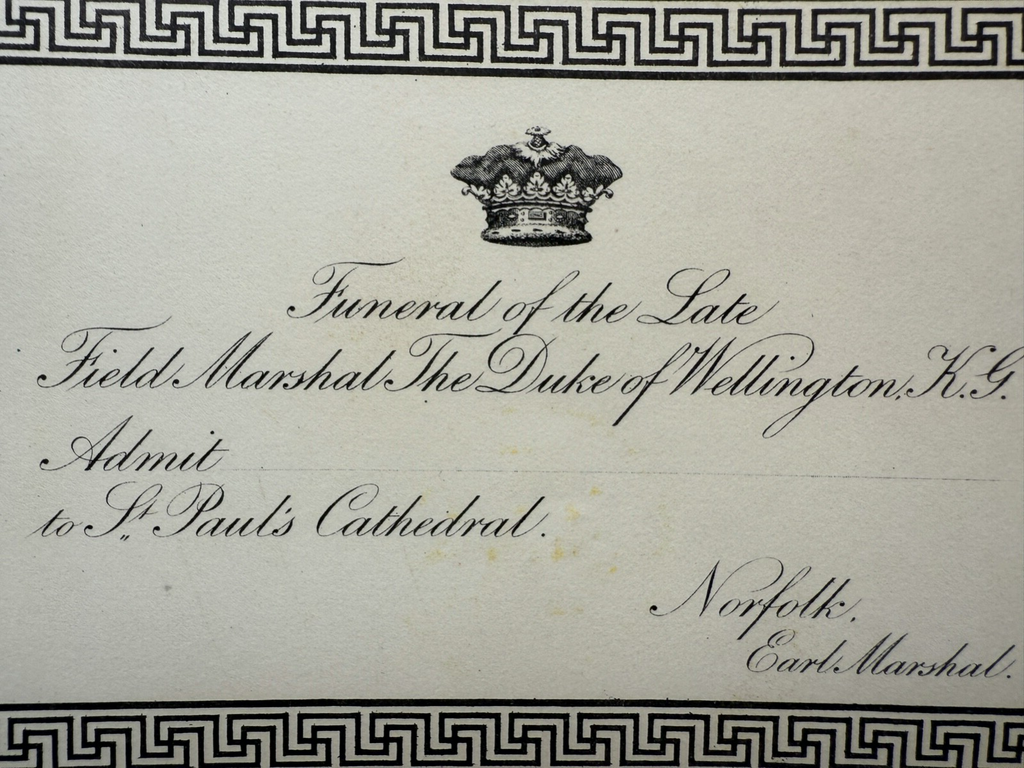 Funeral of the Late
Field Marshal The Duke of Wellington, K.G.
Admit
to St Paul's Cathedral.
Norfolk.
Earl Marshal.